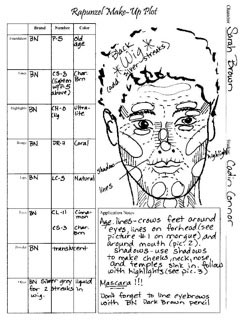 Rapunzel Make-Up Plot
Brand Number Color
Foundation BN P-5 Old age
BN CS-3 (lighten w/P-5 above) Char. Brn
Highlights BN CH-0 Ultra-lite
BN DR-2 Coral
Lips BN LC-3 Natural
BN CL-11 Cinnamon
CS-3 Char. Brn
BN translucent
BN Silver grey liquid for 2 streaks in wig.
Black
*Wig*
(add silver streaks)
shadow
lines
highlight
Character
Sarah Brown
Codin Connor
Application Notes:
Age lines-crows feet around
eyes, lines on forhead (see
picture #1 on montque) and
around mouth (pic. 2).
Shadows-use shadows
to make cheeks, neck, nose,
and temples sink in. follow
with highlights (see pic. 3)
Mascara!!!
Don't forget to line eyebrows
with BN Dark Brown pencil